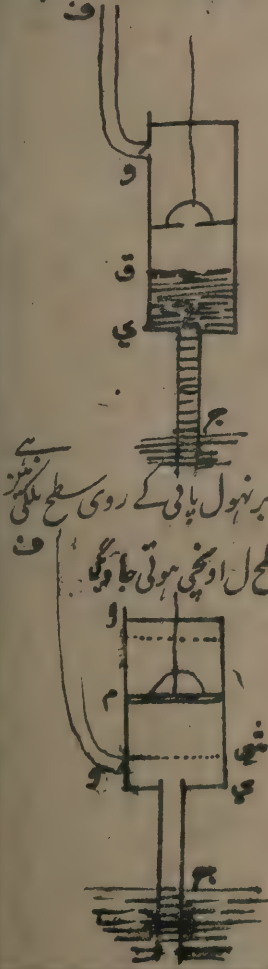 ف
و
ق
ي
ج
ہے
بر نہول پانی کے روی سطح بلکی
ف
طح ل اونچی ہوتی جاویگی
ل
م
و
ي
ج